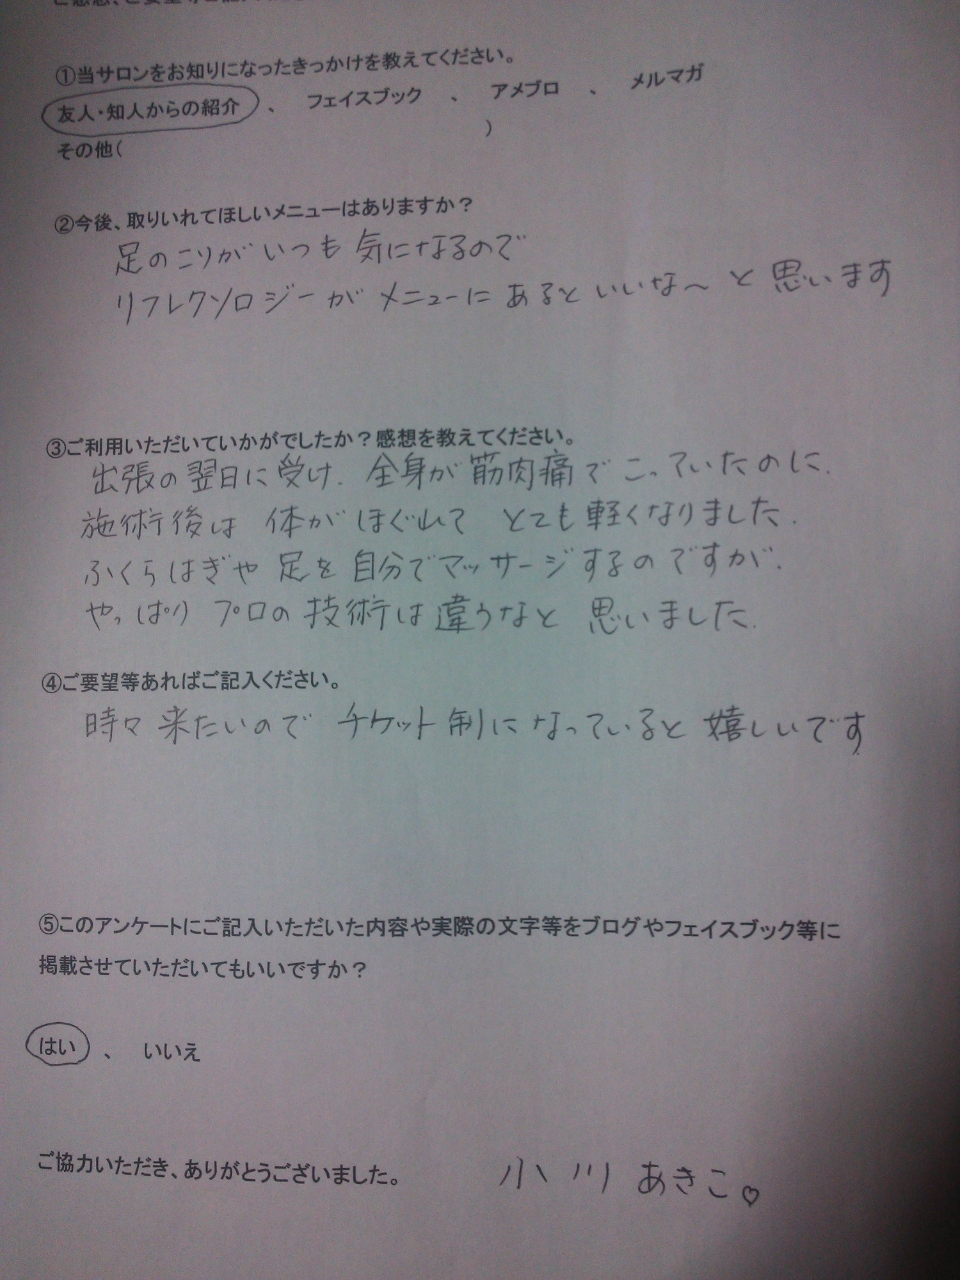 ①当サロンをお知りになったきっかけを教えてください。
友人・知人からの紹介 、 フェイスブック 、 アメブロ 、 メルマガ
その他( )
②今後、取りいれてほしいメニューはありますか？
足のこりがいつも気になるので
リフレクソロジーがメニューにあるといいな〜と思います
③ご利用いただいていかがでしたか？感想を教えてください。
出張の翌日に受け、全身が筋肉痛でこっていたのに、
施術後は体がほぐれてとても軽くなりました。
ふくらはぎや足を自分でマッサージするのですが、
やっぱりプロの技術は違うなと思いました。
④ご要望等あればご記入ください。
時々来たいのでチケット制になっていると嬉しいです
⑤このアンケートにご記入いただいた内容や実際の文字等をブログやフェイスブック等に
掲載させていただいてもいいですか？
はい 、 いいえ
ご協力いただき、ありがとうございました。 小川あきこ♡